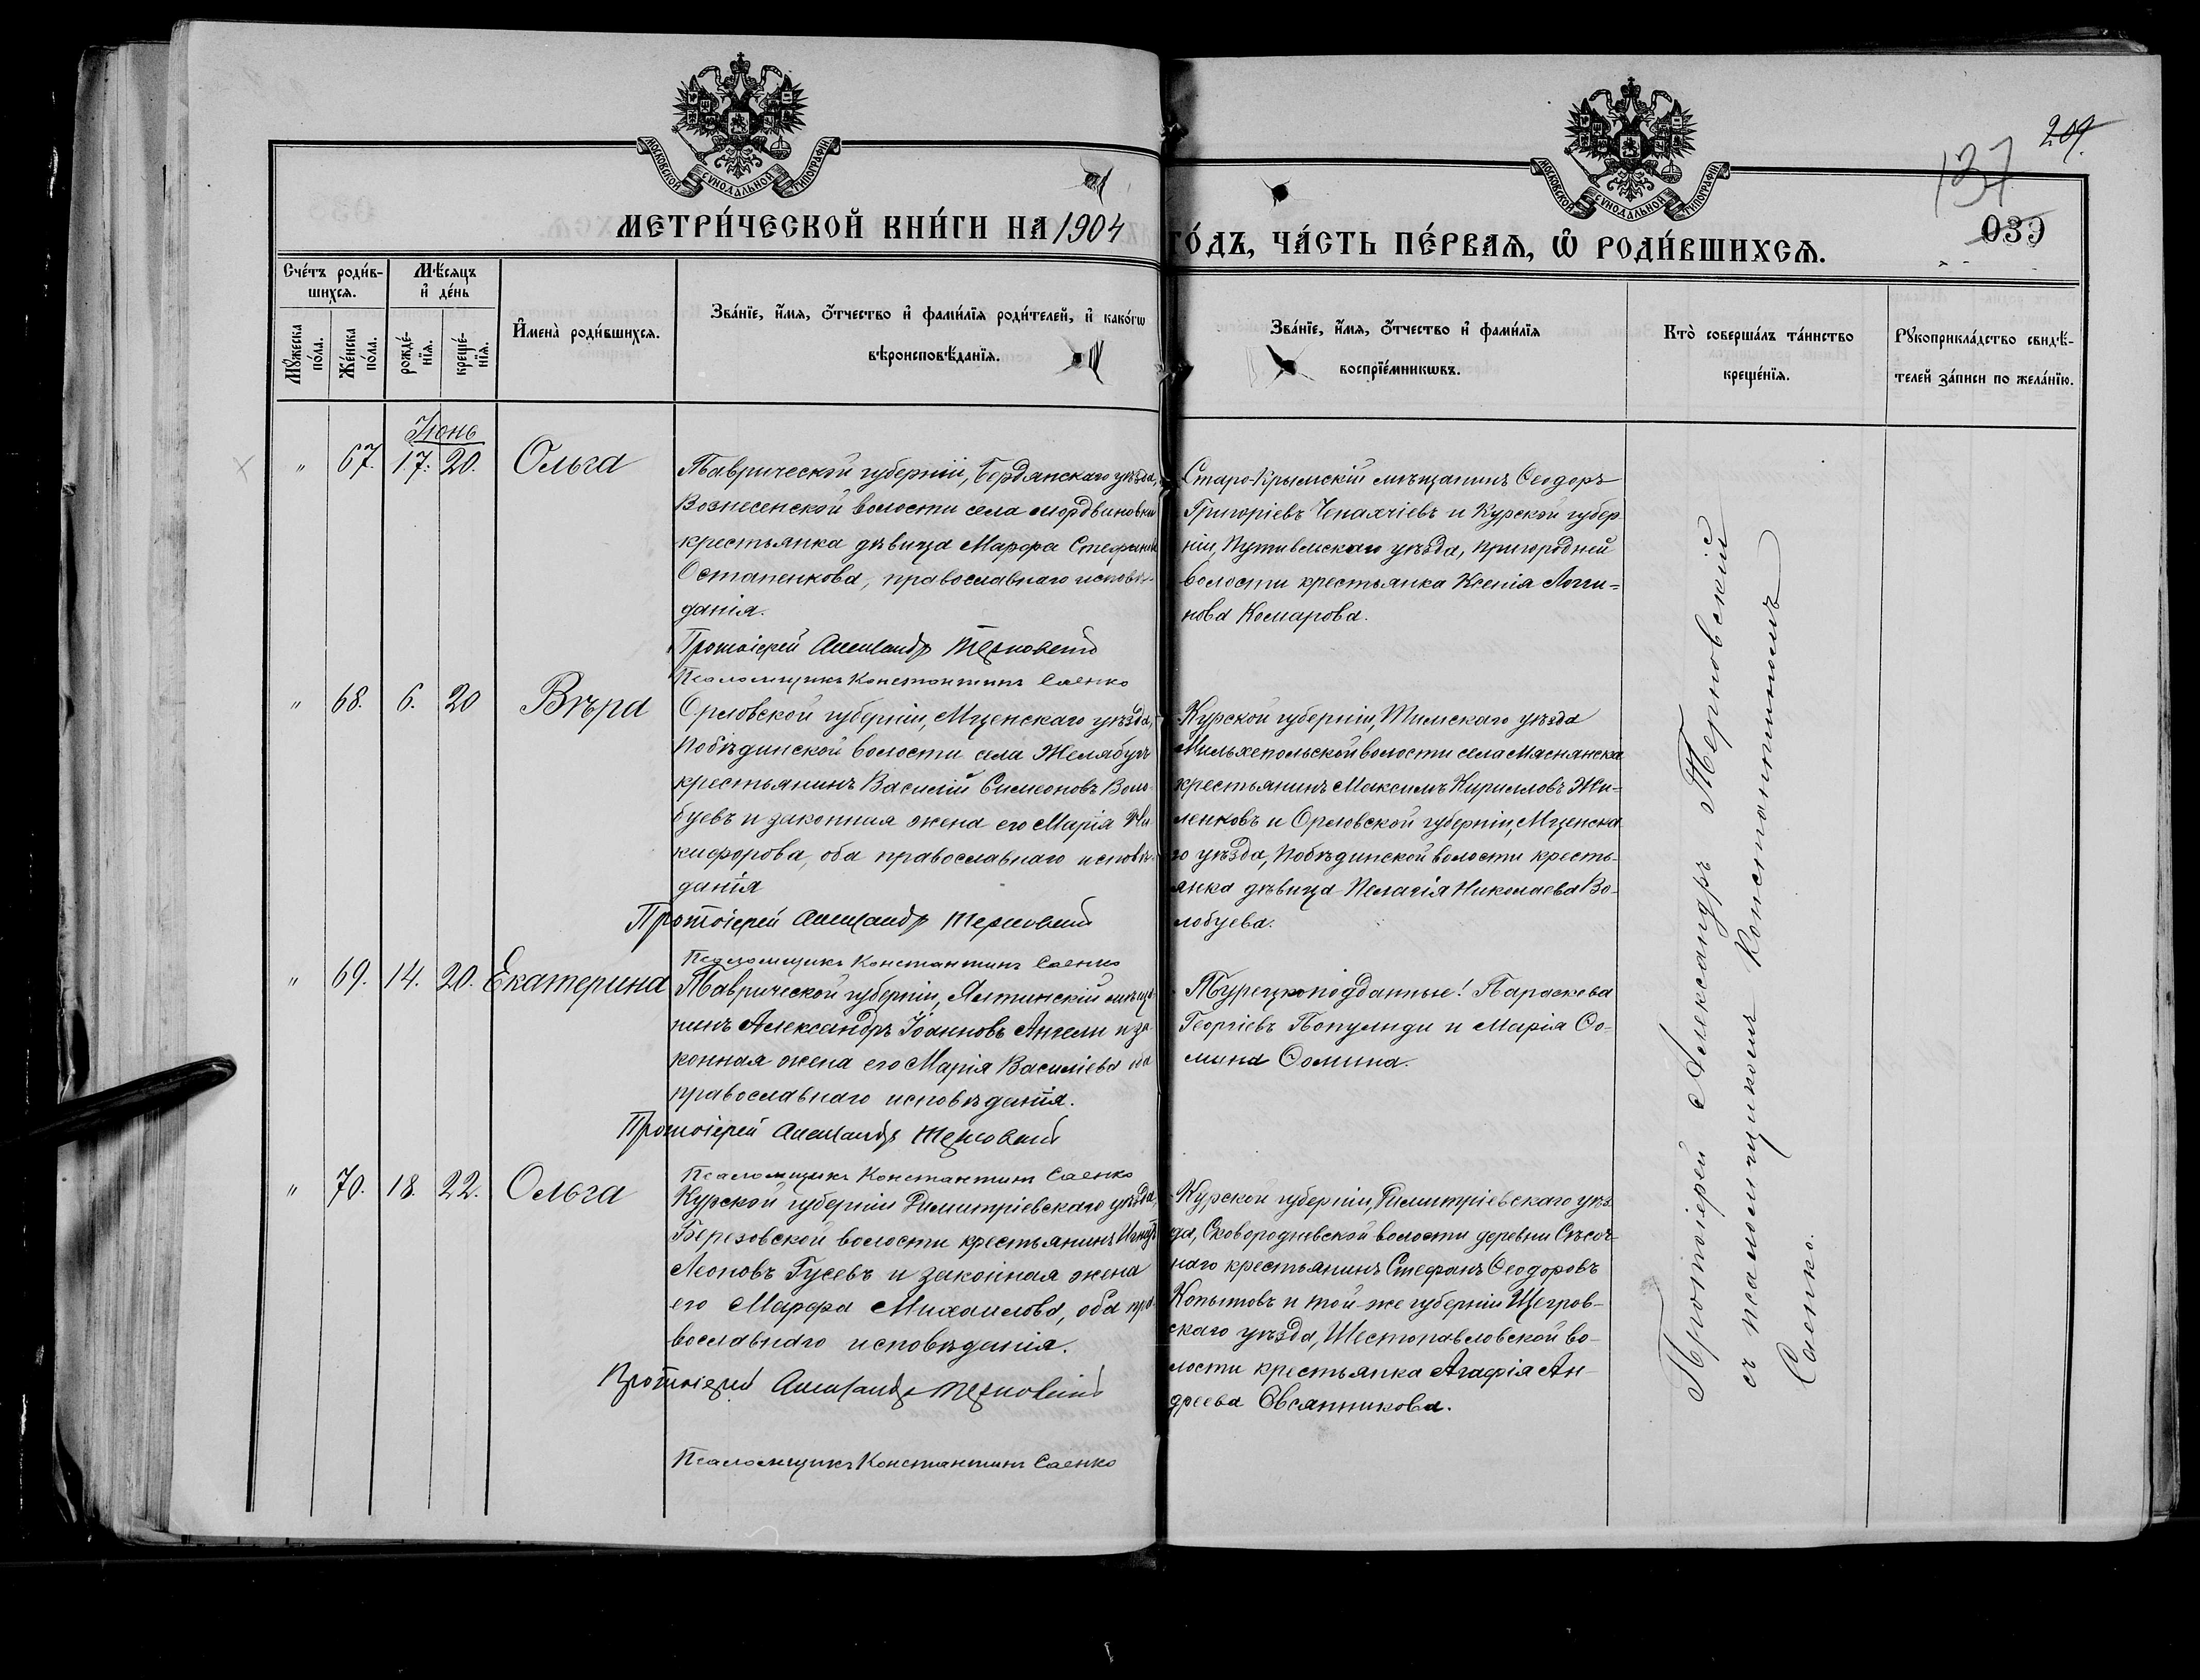 МОСКОВСКОЙ СѴНОДАЛЬНОЙ ТИПОГРАФІИ
МОСКОВСКОЙ СѴНОДАЛЬНОЙ ТИПОГРАФІИ
209.
137
039
МЕТРИ́ЧЕСКОЙ КНИ́ГИ НА 1904 ГО́ДЪ, ЧА́СТЬ ПЕ́РВАѦ, Ѿ РОДИ́ВШИХСѦ.
Сче́тъ роди́в-
шихсѧ.
Мѣ́сѧцъ
и҆ де́нь
Мꙋ́жеска
по́ла.
Же́нска
по́ла.
рожде́-
нїѧ.
креще́-
нїѧ.
И҆мена̀ роди́вшихсѧ.
Зва́нїе, и҆́мѧ, ѻ҆́тчество и҆ фами́лїѧ роди́телей, и҆ како́гѡ
вѣроисповѣ́данїѧ.
Зва́нїе, и҆́мѧ, ѻ҆́тчество и҆ фами́лїѧ
воспрїе́мникѡвъ.
Кто̀ соверша́лъ та́инство
креще́нїѧ.
Рꙋкоприкла́дство свидѣ́-
телей за́писи по жела́нїю.
Июнь
" 67. 17. 20. Ольга
Таврической губерніи, Бердянскаго уѣзда,
Вознесенской волости села Мордвиновки
крестьянка дѣвица Марфа Стефанова
Остапенкова, православнаго исповѣ-
данія.
Протоіерей Александръ Терновскій
Псаломщикъ Константинъ Саенко
Старо-Крымскій мѣщанинъ Ѳеодоръ
Григоріевъ Чепахчіевъ и Курской губер
ніи, Путивльскаго уѣзда, пригородней
волости крестьянка Ксенія Логги-
нова Комарова.
" 68. 6. 20 Вѣра
Орловской губерніи, Мценскаго уѣзда,
Побѣдинской волости села Желябугъ
крестьянинъ Василій Симеоновъ Воло-
буевъ и законная жена его Марія Ни-
кифорова, оба православнаго исповѣ-
данія
Протоіерей Александръ Терновскій
Псаломщикъ Константинъ Саенко
Курской губерніи, Тимскаго уѣзда
волости села
крестьянинъ Максимъ Кирилловъ Жи-
ленковъ и Орловской губерніи, Мценска
го уѣзда, Побѣдинской волости кресть-
янка дѣвица Пелагія Николаева Во-
лобуева.
" 69. 14. 20. Екатерина
Таврической губерніи, Ялтинскій мѣща-
нинъ Александръ Іоанновъ Ангели и за-
конная жена его Марія Василіева оба
православнаго исповѣданія.
Протоіерей Александръ Терновскій
Псаломщикъ Константинъ Саенко
Турецкоподданные: Параскева
Георгіевъ Популиди и Марія Ѳо-
мина Ѳомина.
" 70. 18. 22. Ольга
Курской губерніи Димитріевскаго уѣзда,
Березовской волости крестьянинъ Игнатъ
Леоновъ Гусевъ и законная жена
его Марфа Михаилова, оба пра-
вославнаго исповѣданія.
Протоіерей Александръ Терновскій
Псаломщикъ Константинъ Саенко
Курской губерніи, Димитріевскаго уѣз
да, Сковородневской волости деревни
крестьянинъ Стефанъ Ѳеодоровъ
Копытовъ и той-же губерніи Щегров-
скаго уѣзда, Шестопавловской во-
лости крестьянка Агафія Ан-
дреева Овсянникова.
Протоіерей Александръ Терновскій
съ псаломщикомъ Константиномъ
Саенко.